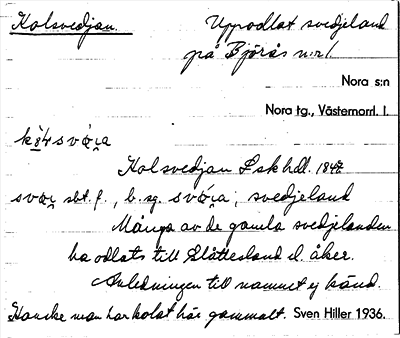 Kolsvedjan. Uppodlat svedjeland
på Björås n:r 1.
Nora s:n
Nora tg., Västernorrl. l.
Kolsvedjan Lskhdl. 1842
sbt. f., b. sg. svǿra; svedjeland
Många av de gamla svedjelanden
ha odlats till slåttesland el. åker.
Anledningen till namnet ej känd.
Kanske man har kolat här gammalt. Sven Hiller 1936.